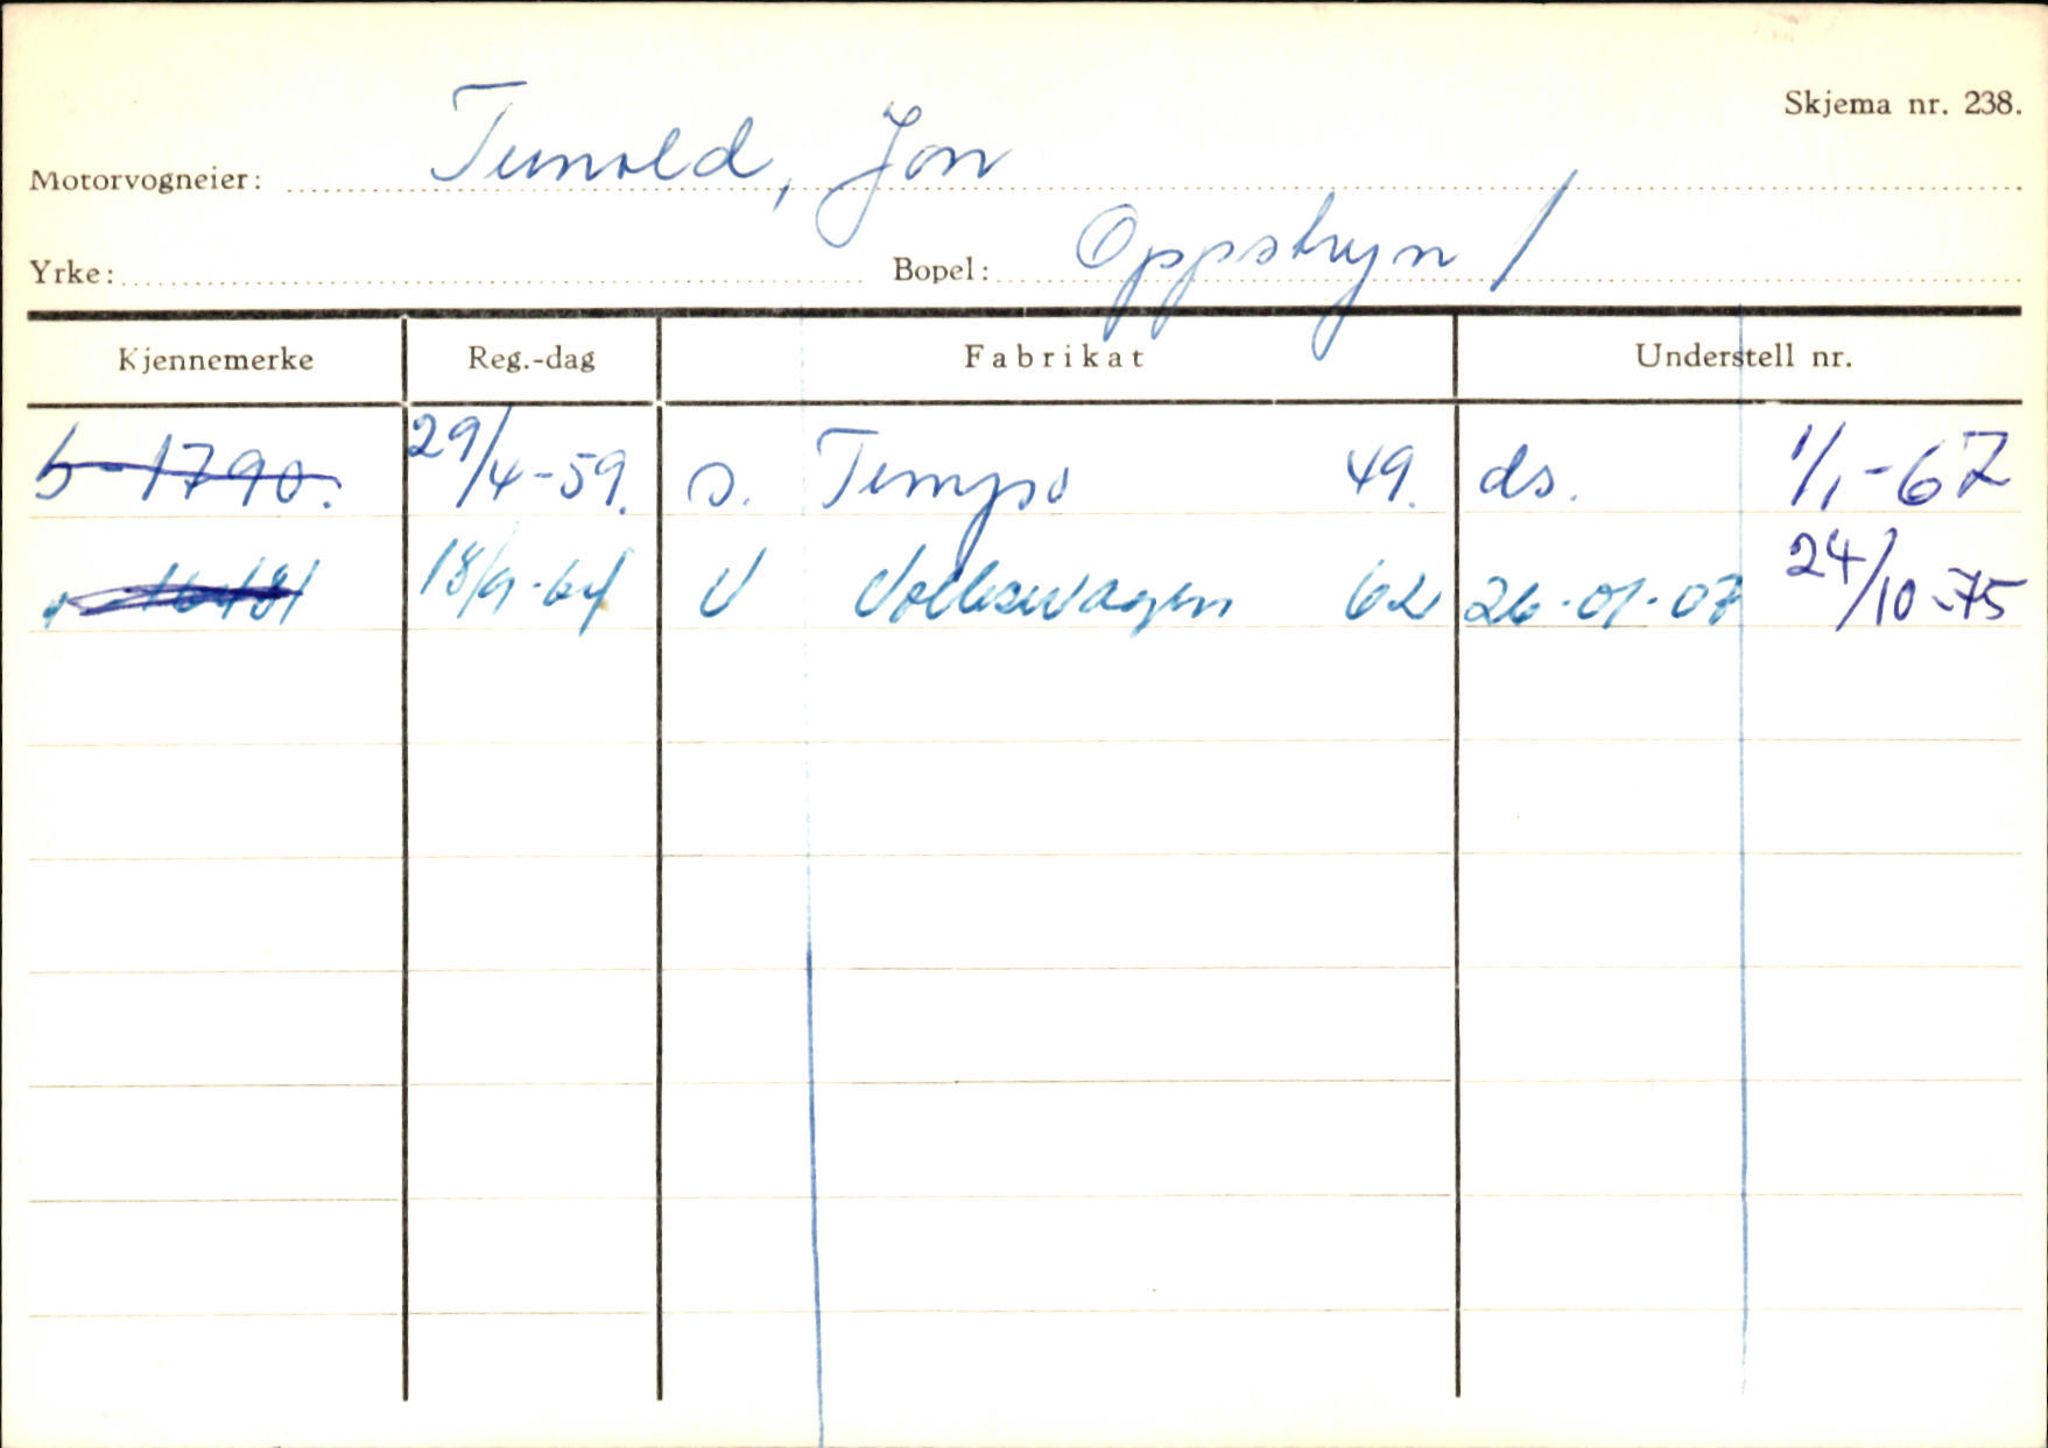 Skjema nr. 238.
Motorvogneier: Tunold, Jon
Yrke: Bopel: Oppstryn /
Kjennemerke Reg.-dag Fabrikat Understell nr.
S-1790. 29/4-59. s. Tempo 49. ds. 1/1-67
18/9-64 V Volkswagen 62 26-01-07 24/10-75